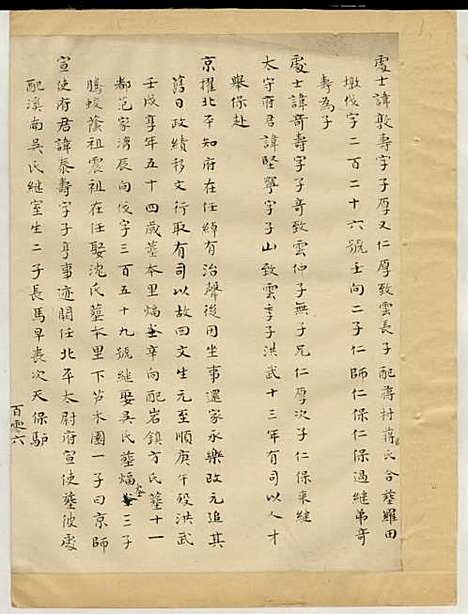 處士諱敦壽字子厚又仁厚致雲長子配蔣村蔣氏合塟羅田
墩伐字二百二十六號壬向二子仁師仁保仁保過繼弟奇
壽為子
處士諱奇壽字子奇致雲仲子無子兄仁厚次子仁保來繼
太守府君諱堅寧字子山致雲季子洪武十三年有司以人才
舉保赴
京擢北平知府在任綽有治聲後因坐事還家永樂改元追其
舊日政績移文行取有司以故回文生元至順庚午殁洪武
壬戌享年五十四歲塟本里塘辛向配岩鎮方氏塟十一
都范家灣辰向伐字三百五十九號繼娶吳氏塟塘三子
騰蛟蔭祖震祖在任娶沈氏塟本里下笻木園一子曰京師
宣使府君諱泰壽字子亨事迹關任北平太尉府宣使塟使處
配溪南吳氏繼室生二子長馬早喪次天保驢
百零六